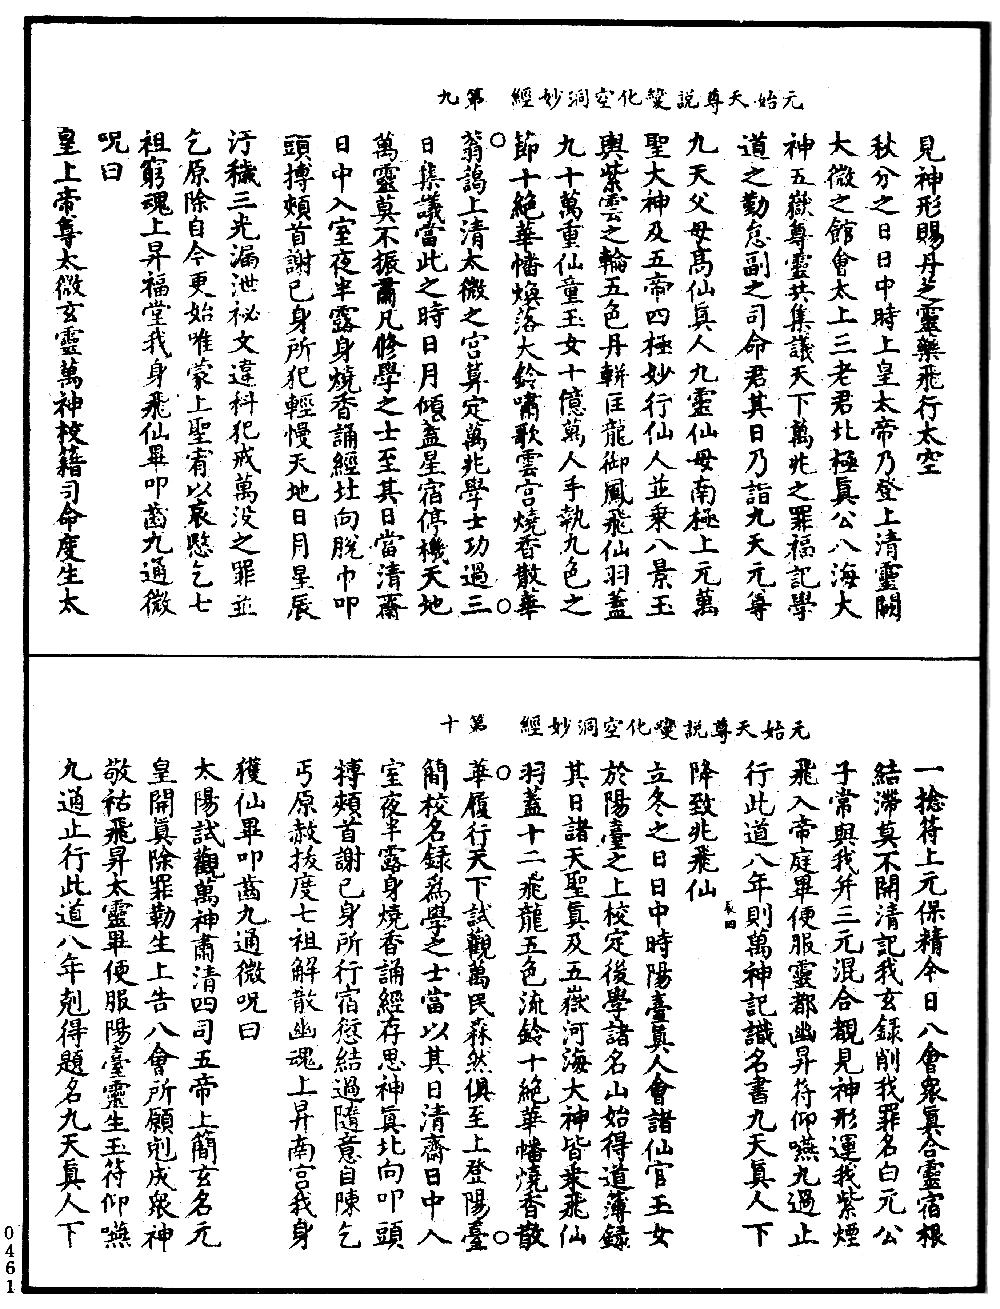 元始天尊說變化空洞妙經　第九
見神形賜丹芝靈藥飛行太空
秋分之日日中時上皇太帝乃登上清靈闕
大微之館會太上三老君北極眞公八海大
神五嶽尊靈共集議天下萬兆之罪福記學
道之勤怠副之司命君其日乃詣九天元尊
九天父母高仙眞人九靈仙母南極上元萬
聖大神及五帝四極妙行仙人並乘八景玉
輿紫雲之輪五色丹軿匡龍御鳳飛仙羽蓋
九十萬重仙童玉女十億萬人手執九色之
節十絕華幡煥落大鈴嘯歌雲宮燒香散華
翁謁上清太微之宮算定萬兆學士功過三
日集議當此之時日月傾蓋星宿停機天地
萬靈莫不振肅凡修學之士至其日當清齋
日中入室夜半露身燒香誦經北向脫巾叩
頭搏頰首謝已身所犯輕慢天地日月星辰
汙穢三光漏泄祕文違科犯戒萬没之罪並
乞原除自今更始唯蒙上聖宥以哀愍乞七
祖窮魂上昇福堂我身飛仙畢叩齒九通微
呪曰
皇上帝尊太微玄靈萬神校籍司命度生太
元始天尊說變化空洞妙經　第十
一捻符上元保精今日八會衆眞合靈宿根
結滯莫不開清記我玄錄削我罪名白元公
子常與我并三元混合覩見神形運我紫煙
飛入帝庭畢便服靈都幽昇符仰嚥九過止
行此道八年則萬神記識名書九天眞人下
降致兆飛仙
辰四
立冬之日日中時陽臺眞人會諸仙官玉女
於陽臺之上校定後學諸名山始得道簿錄
其日諸天聖眞及五嶽河海大神皆乘飛仙
羽蓋十二飛龍五色流鈴十絕華幡燒香散
華履行天下試觀萬民森然俱至上登陽臺
簡校名錄爲學之士當以其日清齋日中入
室夜半露身燒香誦經存思神眞北向叩頭
搏頰首謝已身所行宿愆結過隨意自陳乞
丐原赦拔度七祖解散幽魂上昇南宮我身
獲仙畢叩齒九通微呪曰
太陽試觀萬神肅清四司五帝上簡玄名元
皇開眞除罪勒生上告八會所願剋成衆神
敬祐飛昇太靈畢便服陽臺靈生玉符仰嚥
九通止行此道八年剋得題名九天眞人下
0461